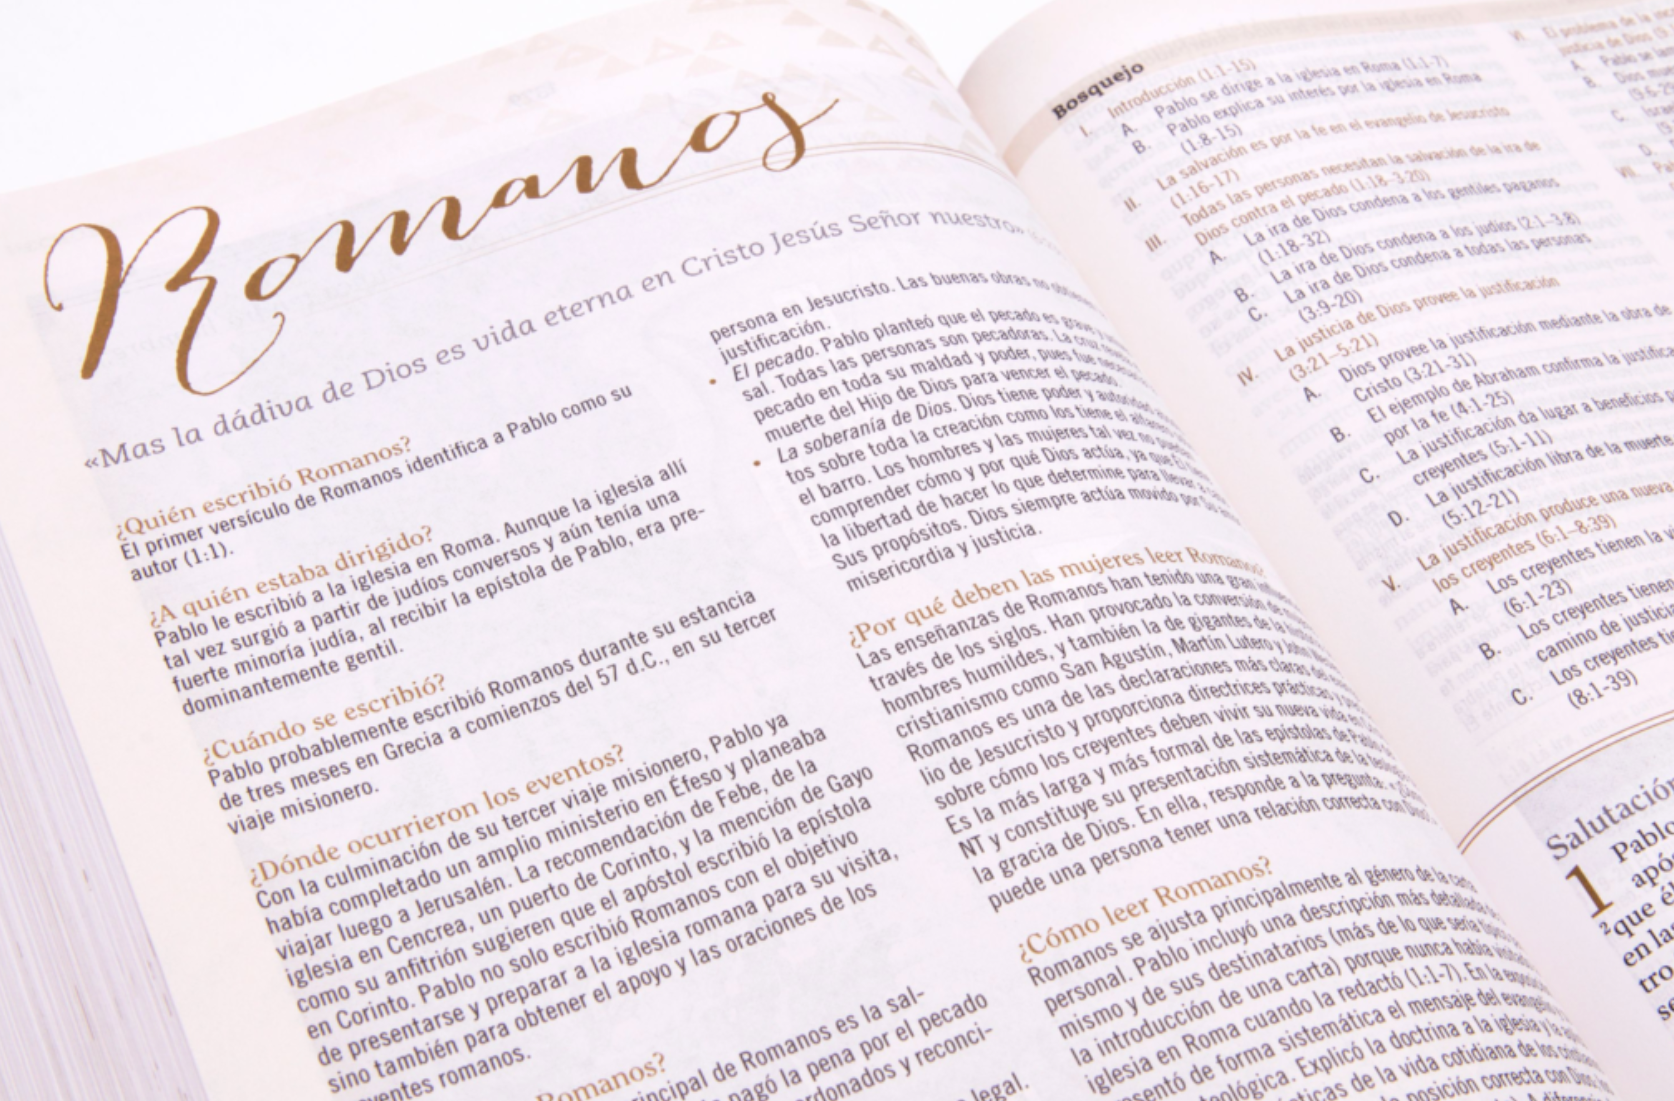 Romanos
«Mas la dádiva de Dios es vida eterna en Cristo Jesús Señor nuestro»
¿Quién escribió Romanos?
El primer versículo de Romanos identifica a Pablo como su
autor (1:1).
¿A quién estaba dirigido?
Pablo le escribió a la iglesia en Roma. Aunque la iglesia allí
tal vez surgió a partir de judíos conversos y aún tenía una
fuerte minoría judía, al recibir la epístola de Pablo, era pre-
dominantemente gentil.
¿Cuándo se escribió?
Pablo probablemente escribió Romanos durante su estancia
de tres meses en Grecia a comienzos del 57 d.C., en su tercer
viaje misionero.
¿Dónde ocurrieron los eventos?
Con la culminación de su tercer viaje misionero, Pablo ya
había completado un amplio ministerio en Éfeso y planeaba
viajar luego a Jerusalén. La recomendación de Febe, de la
iglesia en Cencrea, un puerto de Corinto, y la mención de Gayo
como su anfitrión sugieren que el apóstol escribió la epístola
en Corinto. Pablo no solo escribió Romanos con el objetivo
de presentarse y preparar a la iglesia romana para su visita,
sino también para obtener el apoyo y las oraciones de los
yentes romanos.
Romanos?
principal de Romanos es la sal-
pagó la pena por el pecado
rdonados y reconci-
legal.
persona en Jesucristo. Las buenas obras no
justificación.
• El pecado. Pablo planteó que el pecado es grave
sal. Todas las personas son pecadoras. La cruz
pecado en toda su maldad y poder, pues fue
muerte del Hijo de Dios para vencer el pecado.
• La soberanía de Dios. Dios tiene poder y
tos sobre toda la creación como los tiene el
el barro. Los hombres y las mujeres tal vez no
comprender cómo y por qué Dios actúa, ya que Él
la libertad de hacer lo que determine para llevar a
Sus propósitos. Dios siempre actúa movido por Su
misericordia y justicia.
¿Por qué deben las mujeres leer Romanos?
Las enseñanzas de Romanos han tenido una gran
través de los siglos. Han provocado la conversión de
hombres humildes, y también la de gigantes de la
cristianismo como San Agustín, Martín Lutero y John
Romanos es una de las declaraciones más claras del
lio de Jesucristo y proporciona directrices prácticas
sobre cómo los creyentes deben vivir su nueva vida en
Es la más larga y más formal de las epístolas de Pablo
NT y constituye su presentación sistemática de la
la gracia de Dios. En ella, responde a la pregunta:
puede una persona tener una relación correcta con
¿Cómo leer Romanos?
Romanos se ajusta principalmente al género de la carta
personal. Pablo incluyó una descripción más detallada
mismo y de sus destinatarios (más de lo que sería
la introducción de una carta) porque nunca había
iglesia en Roma cuando la redactó (1:1-7). En la
sentó de forma sistemática el mensaje del
teológica. Explicó la doctrina a la iglesia y la
sticas de la vida cotidiana de los
posición correcta con Dios
Bosquejo
I. Introducción (1:1-15)
A. Pablo se dirige a la iglesia en Roma (1:1-7)
B. Pablo explica su interés por la iglesia en Roma
(1:8-15)
II. La salvación es por la fe en el evangelio de Jesucristo
(1:16-17)
III. Todas las personas necesitan la salvación de la ira de
Dios contra el pecado (1:18–3:20)
A. La ira de Dios condena a los gentiles paganos
(1:18-32)
B. La ira de Dios condena a los judíos (2:1–3:8)
C. La ira de Dios condena a todas las personas
(3:9-20)
IV. La justicia de Dios provee la justificación
(3:21–5:21)
A. Dios provee la justificación mediante la obra de
Cristo (3:21-31)
B. El ejemplo de Abraham confirma la
por la fe (4:1-25)
C. La justificación da lugar a beneficios
creyentes (5:1-11)
D. La justificación libra de la muerte
(5:12-21)
V. La justificación produce una nueva
los creyentes (6:1–8:39)
A. Los creyentes tienen la
(6:1-23)
B. Los creyentes tienen
camino de
C. Los creyentes
(8:1-39)
Salutación
1 Pablo
que
en la